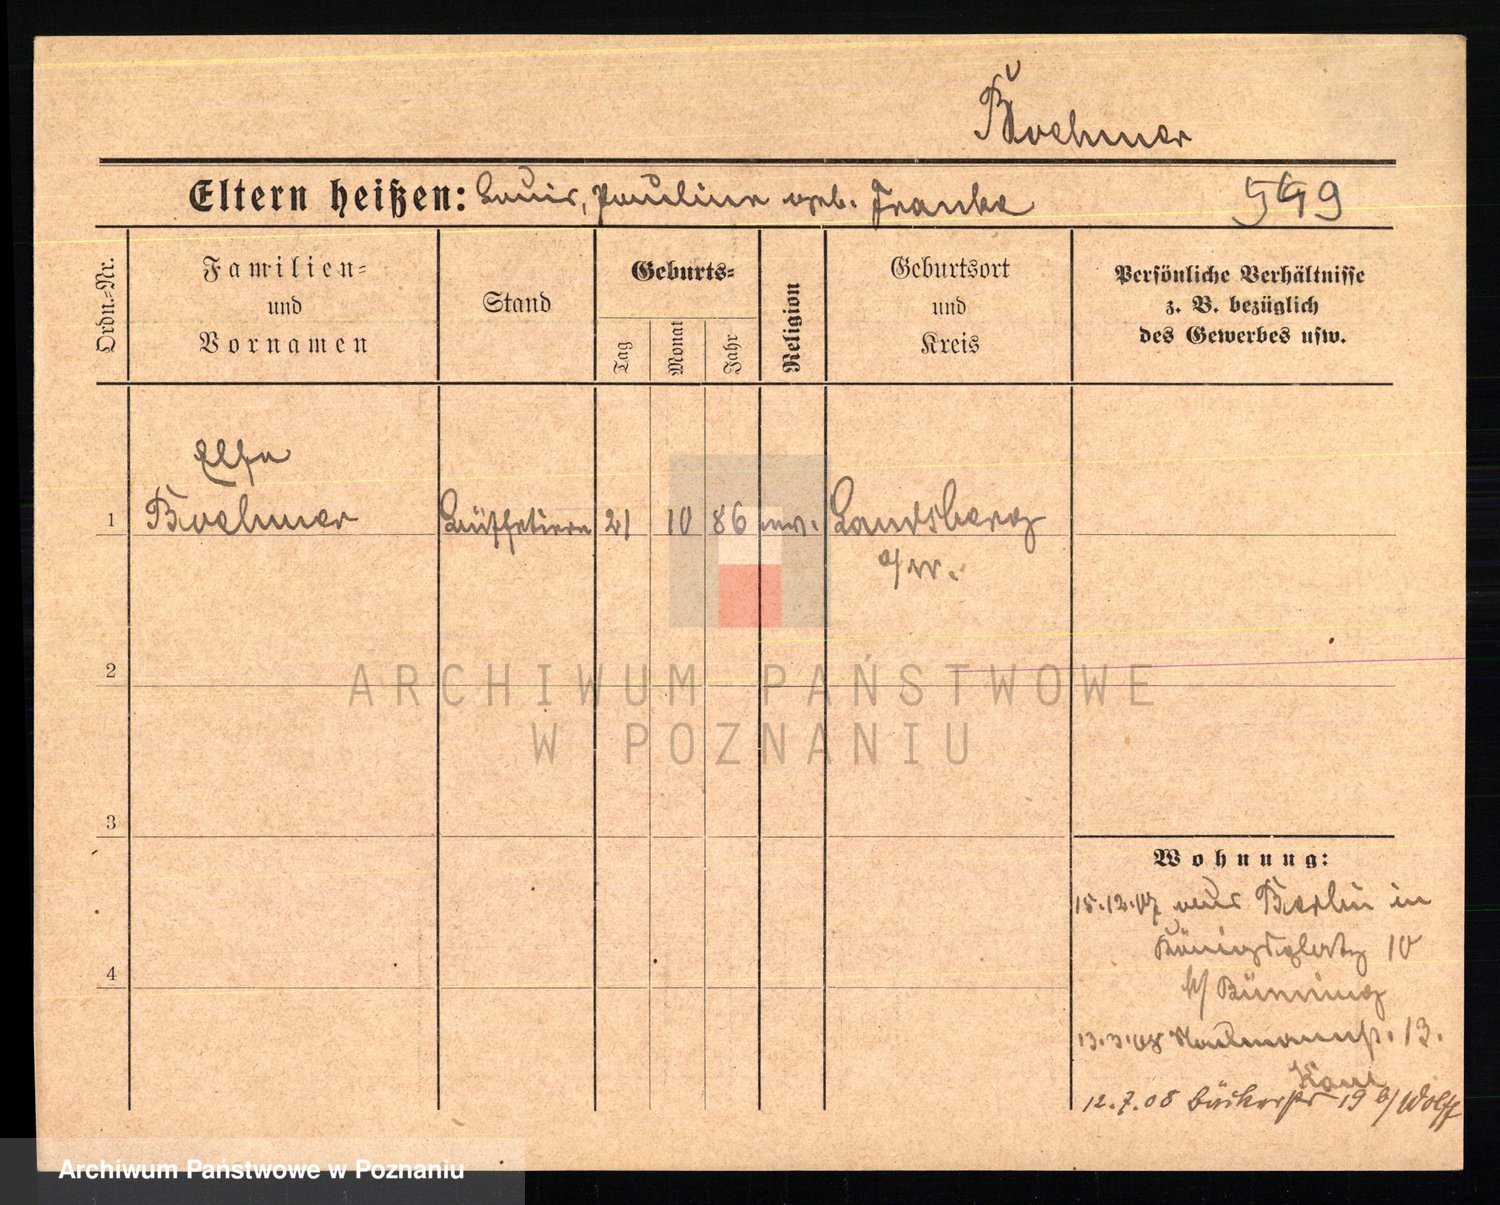 Boehmer
Eltern heißen: Louis, Pauline geb. Franke 549
Ordn.-Nr.
Familien-
und
Vornamen
Stand
Geburts-
Tag
Monat
Jahr
Religion
Geburtsort
und
Kreis
Persönliche Verhältnisse
z. B. bezüglich
des Gewerbes usw.
Elsa
1 Boehmer Büffetiere 21 10 86 ev. Landsberg
a/W.
2
ARCHIWUM PAŃSTWOWE
W POZNANIU
3
Wohnung:
15.12.07 aus Berlin in
Königsplatz 10
b/ Bünning
4
13.3.08 Naumannstr. 13.
12.7.08 Bäckerstr 19 b/ Wolff
Archiwum Państwowe w Poznaniu